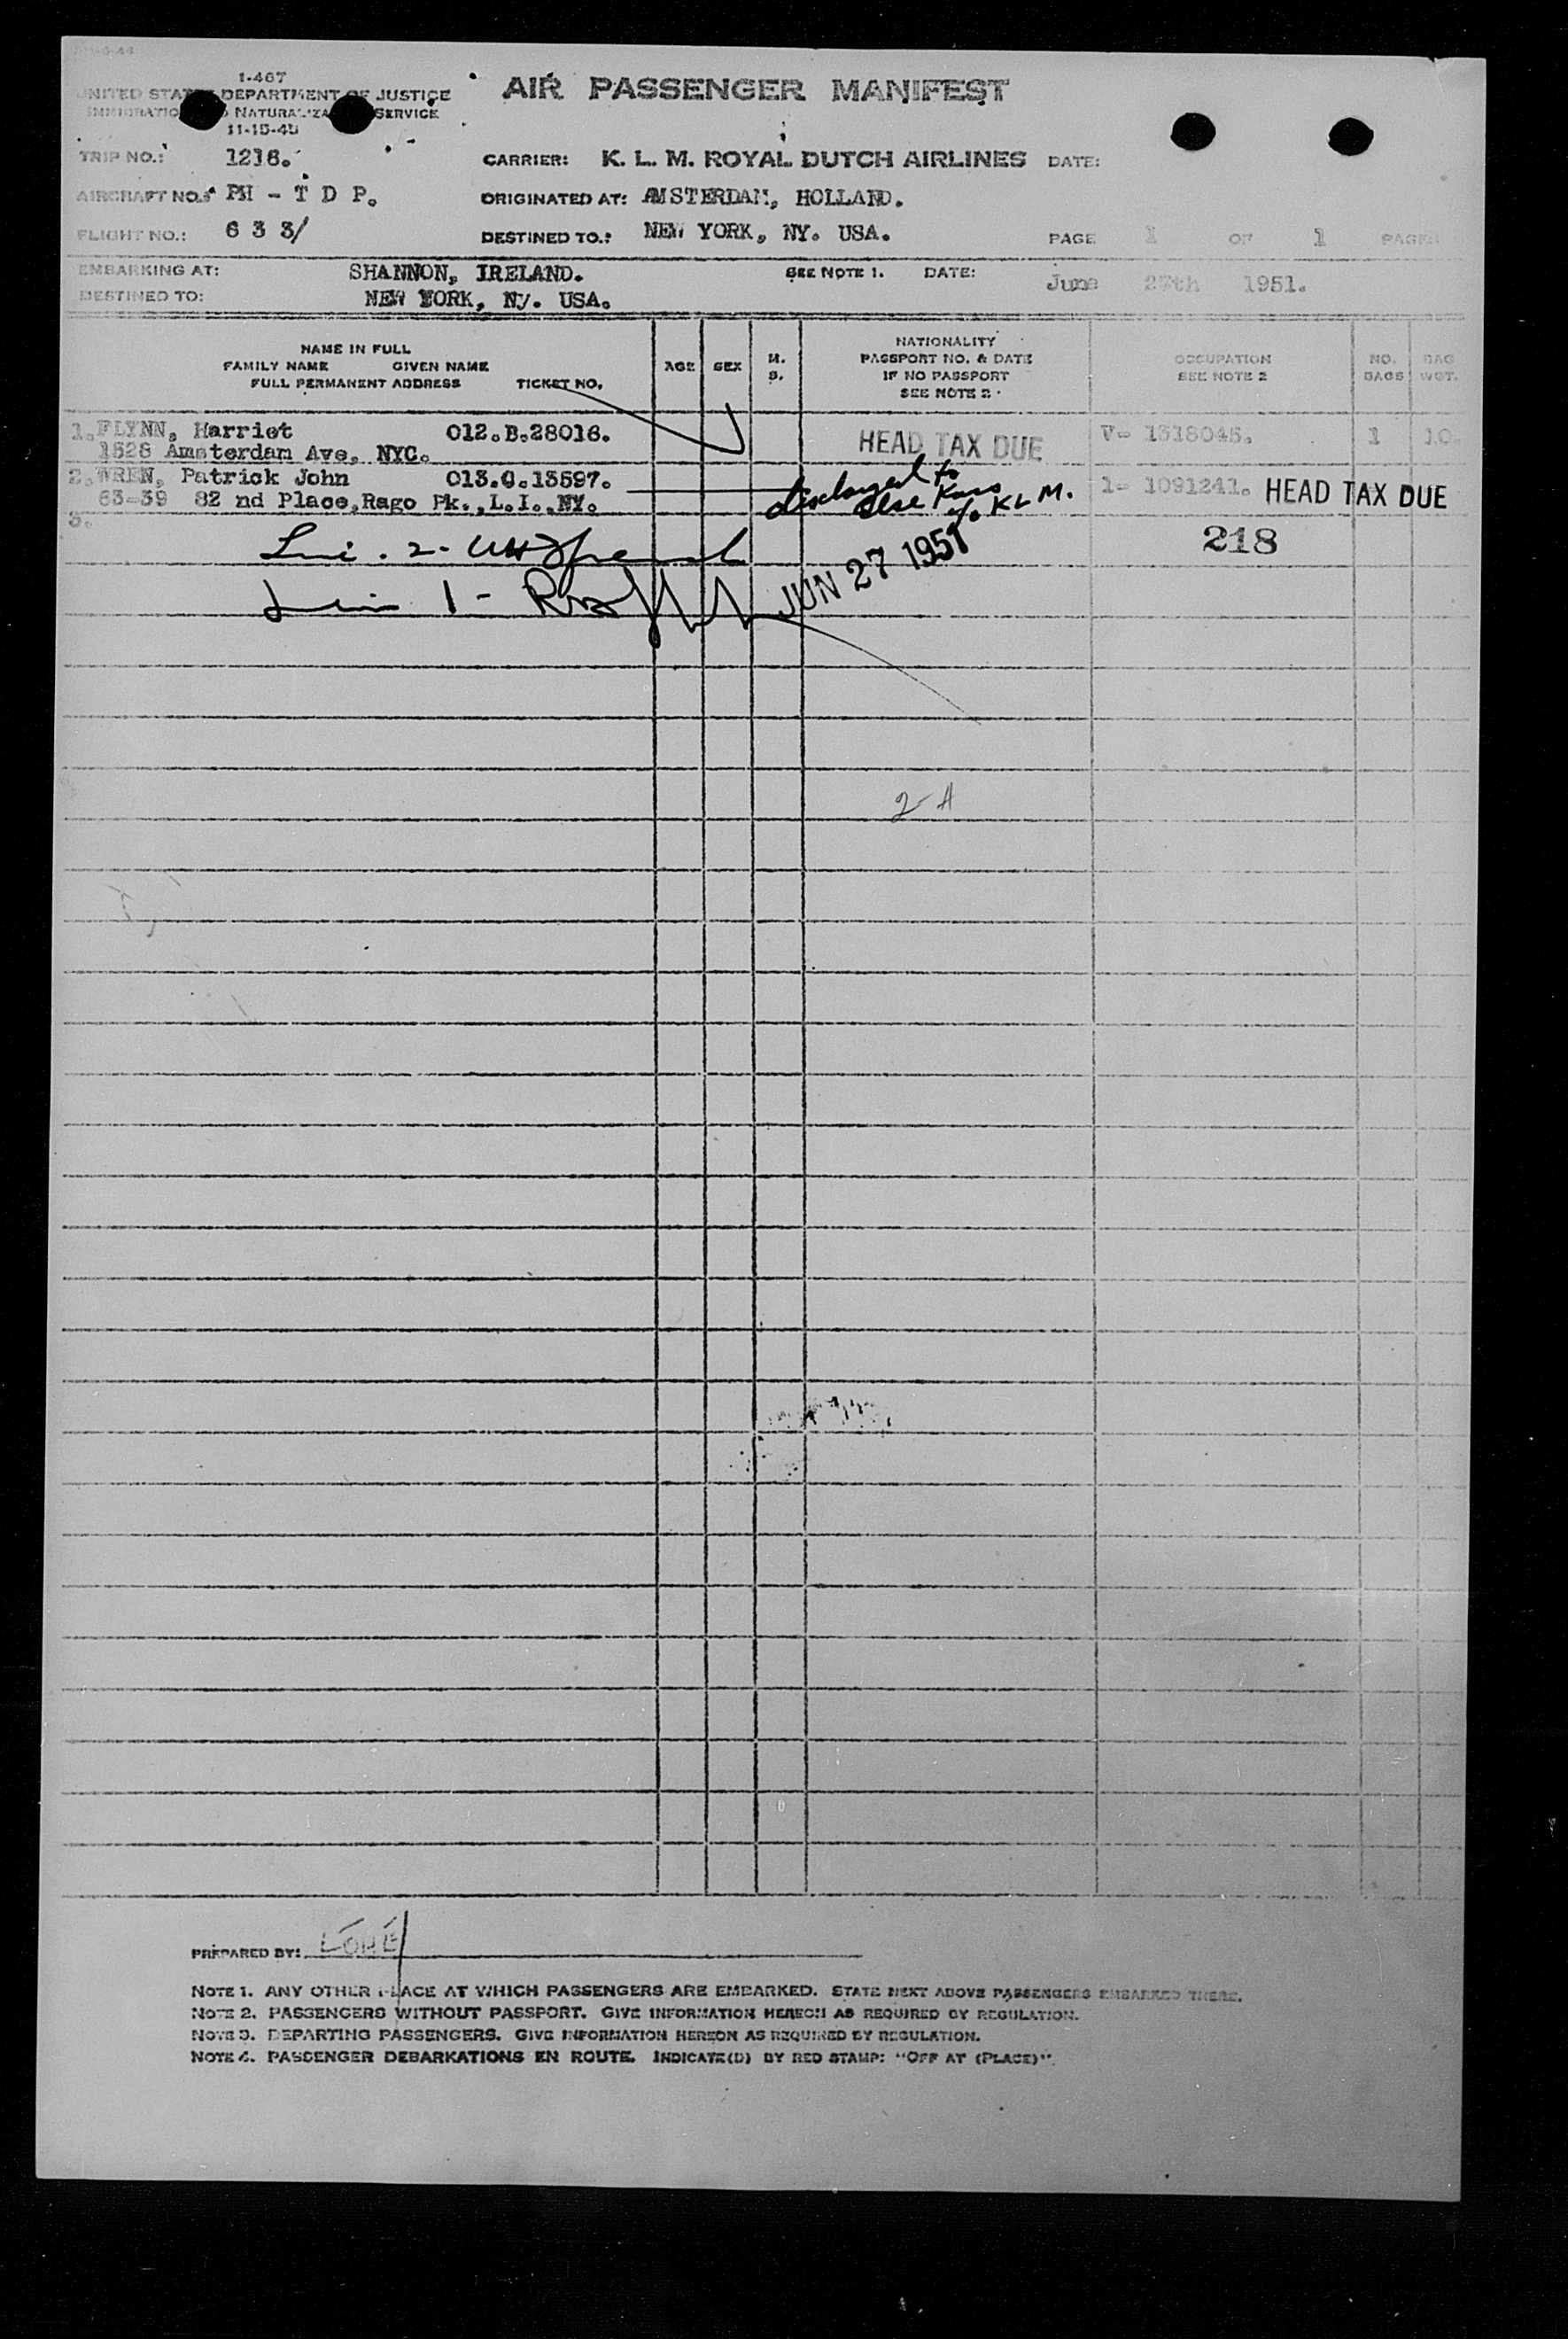 1-467
UNITED STATES DEPARTMENT OF JUSTICE
IMMIGRATION NATURALIZA SERVICE
11-15-45
AIR PASSENGER MANIFEST
TRIP NO.: 1216. CARRIER: K. L. M. ROYAL DUTCH AIRLINES DATE:
AIRCRAFT NO.: PH - T D P. ORIGINATED AT: AMSTERDAM, HOLLAND.
FLIGHT NO.: 6 3 3/ DESTINED TO.: NEW YORK, NY. USA. PAGE 1 OF 1 PAGES
EMBARKING AT: SHANNON, IRELAND. SEE NOTE 1. DATE: June 27th 1951.
DESTINED TO: NEW YORK, NY. USA.
NAME IN FULL
FAMILY NAME GIVEN NAME
FULL PERMANENT ADDRESS TICKET NO.
AGE SEX M. S.
NATIONALITY
PASSPORT NO. & DATE
IF NO PASSPORT
SEE NOTE 2
OCCUPATION
SEE NOTE 2
NO. BAGS
BAG WGT.
1. FLYNN, Harriet 012.B.28016. HEAD TAX DUE V- 1318045. 1 10
1528 Amsterdam Ave, NYC.
2. WREN, Patrick John 013.C.13597. 1- 1091241. HEAD TAX DUE
63-39 82 nd Place,Rego Pk.,L.I.,NY.
discharged to
Else
c/o KLM.
3.
218
JUN 27 1951
2-A
PREPARED BY:
NOTE 1. ANY OTHER PLACE AT WHICH PASSENGERS ARE EMBARKED. STATE NEXT ABOVE PASSENGERS EMBARKED THERE.
NOTE 2. PASSENGERS WITHOUT PASSPORT. GIVE INFORMATION HEREON AS REQUIRED BY REGULATION.
NOTE 3. DEPARTING PASSENGERS. GIVE INFORMATION HEREON AS REQUIRED BY REGULATION.
NOTE 4. PASSENGER DEBARKATIONS EN ROUTE. INDICATE(D) BY RED STAMP: "OFF AT (PLACE)".